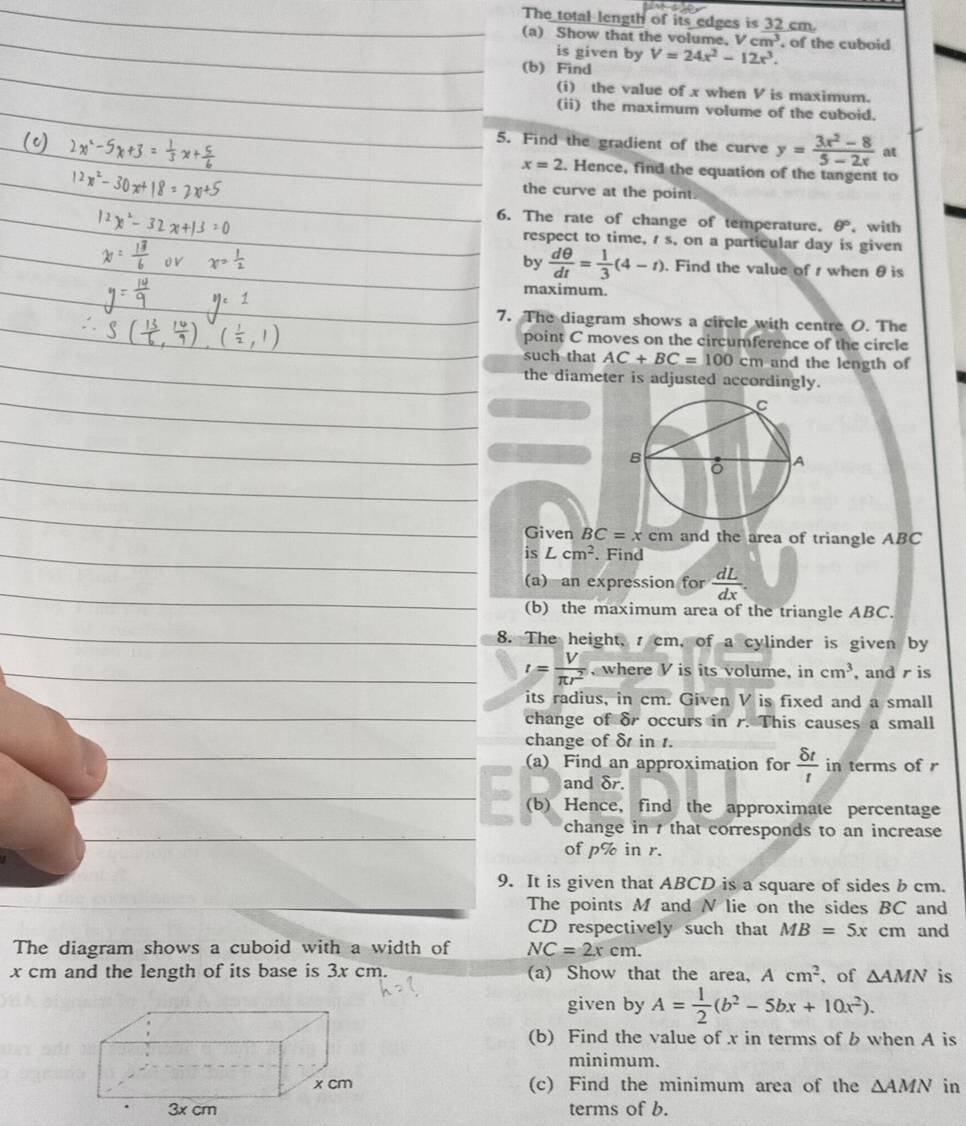 (c) 2x² - 5x + 3 = 1/3 x + 5/6
12x² - 30x + 18 = 2x + 5
12x² - 32x + 13 = 0
x = 13/6 or x = 1/2
y = 14/9 y = 1
∴ S (13/6, 14/9), (1/2, 1)
The diagram shows a cuboid with a width of
x cm and the length of its base is 3x cm.
h = ?
x cm
3x cm
The total length of its edges is 32 cm.
(a) Show that the volume, V cm³, of the cuboid
is given by V = 24x² − 12x³.
(b) Find
(i) the value of x when V is maximum.
(ii) the maximum volume of the cuboid.
5. Find the gradient of the curve y = (3x² − 8)/(5 − 2x) at
x = 2. Hence, find the equation of the tangent to
the curve at the point.
6. The rate of change of temperature, θ°, with
respect to time, t s, on a particular day is given
by dθ/dt = 1/3 (4 − t). Find the value of t when θ is
maximum.
7. The diagram shows a circle with centre O. The
point C moves on the circumference of the circle
such that AC + BC = 100 cm and the length of
the diameter is adjusted accordingly.
C
B
O
A
Given BC = x cm and the area of triangle ABC
is L cm². Find
(a) an expression for dL/dx.
(b) the maximum area of the triangle ABC.
8. The height, t cm, of a cylinder is given by
t = V/πr², where V is its volume, in cm³, and r is
its radius, in cm. Given V is fixed and a small
change of δr occurs in r. This causes a small
change of δt in t.
(a) Find an approximation for δt/t in terms of r
and δr.
(b) Hence, find the approximate percentage
change in t that corresponds to an increase
of p% in r.
9. It is given that ABCD is a square of sides b cm.
The points M and N lie on the sides BC and
CD respectively such that MB = 5x cm and
NC = 2x cm.
(a) Show that the area, A cm², of ΔAMN is
given by A = 1/2 (b² − 5bx + 10x²).
(b) Find the value of x in terms of b when A is
minimum.
(c) Find the minimum area of the ΔAMN in
terms of b.
ER EDU